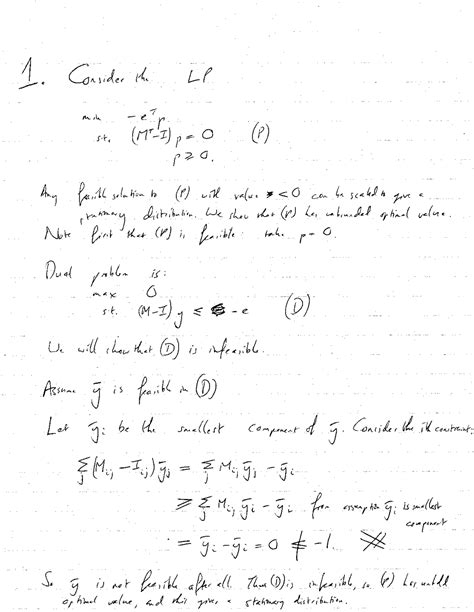 1. Consider the LP
min -eᵀp
s.t. (Mᵀ-I)p = 0 (P)
p ≥ 0.
Any feasible solution to (P) with value < 0 can be scaled to give a
stationary distribution. We show that (P) has unbounded optimal value.
Note first that (P) is feasible: take p = 0.
Dual problem is:
max 0
s.t. (M-I)y ≤ -e (D)
We will show that (D) is infeasible.
Assume ȳ is feasible in (D)
Let ȳᵢ be the smallest component of ȳ. Consider the ith constraint:
∑ⱼ(Mᵢⱼ-Iᵢⱼ)ȳⱼ = ∑ⱼ Mᵢⱼ ȳⱼ - ȳᵢ
≥ ∑ⱼ Mᵢⱼ ȳᵢ - ȳᵢ from assumption ȳᵢ is smallest
component
= ȳᵢ - ȳᵢ = 0 ≰ -1.
So ȳ is not feasible after all. Thus (D) is infeasible, so (P) has unbdd
optimal value, and this gives a stationary distribution.